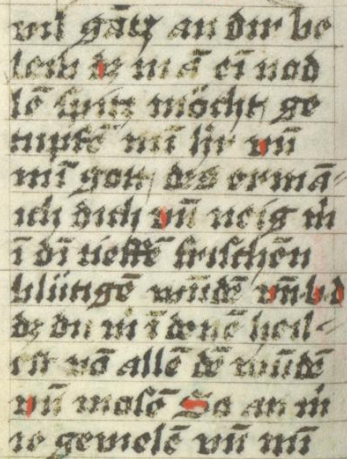 nit gātz an dir be
leib dz m ā eī nod
lē spitz möcht ge
tupfē mī h̄r vn̄
mī gott des ermā-
ich dich vn̄ neig m̄
ī dī tieffē frischen
blůtigē wūdē vn̄ b d
dz du m̄ ī denē heil-
est vō allē dē wūdē
vn̄ masē So an m̄
ie geweſē vn̄ mī